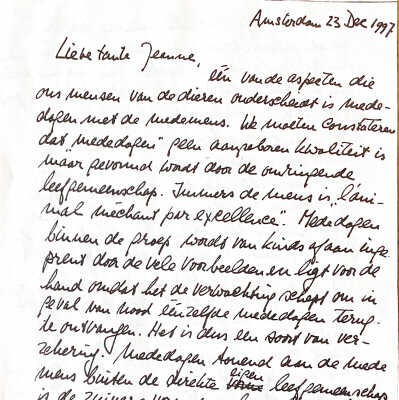 Amsterdam 23 Dec 1997
Liebe tante Jeanne,
één van de aspecten die
ons mensen van de dieren onderscheidt is mede-
dogen met de medemens. We moeten Constateren
dat "mededogen" geen aangeboren kwaliteit is
maar gevormd wordt door de omringende
leefgemeenschap. Immers de mens is "l'ani-
mal méchant par excellence". Mededogen
binnen de groep wordt van kinds af aan inge
prent door de vele voorbeelden en ligt voor de
hand omdat het de verwachting schept om in
geval van nood éénzelfde mededogen terug
te ontvangen. Het is dus een soort van ver-
zekering. Mededogen tonend aan de mede
mens buiten de direkte eigen leefgemeenschap
is de zuivere